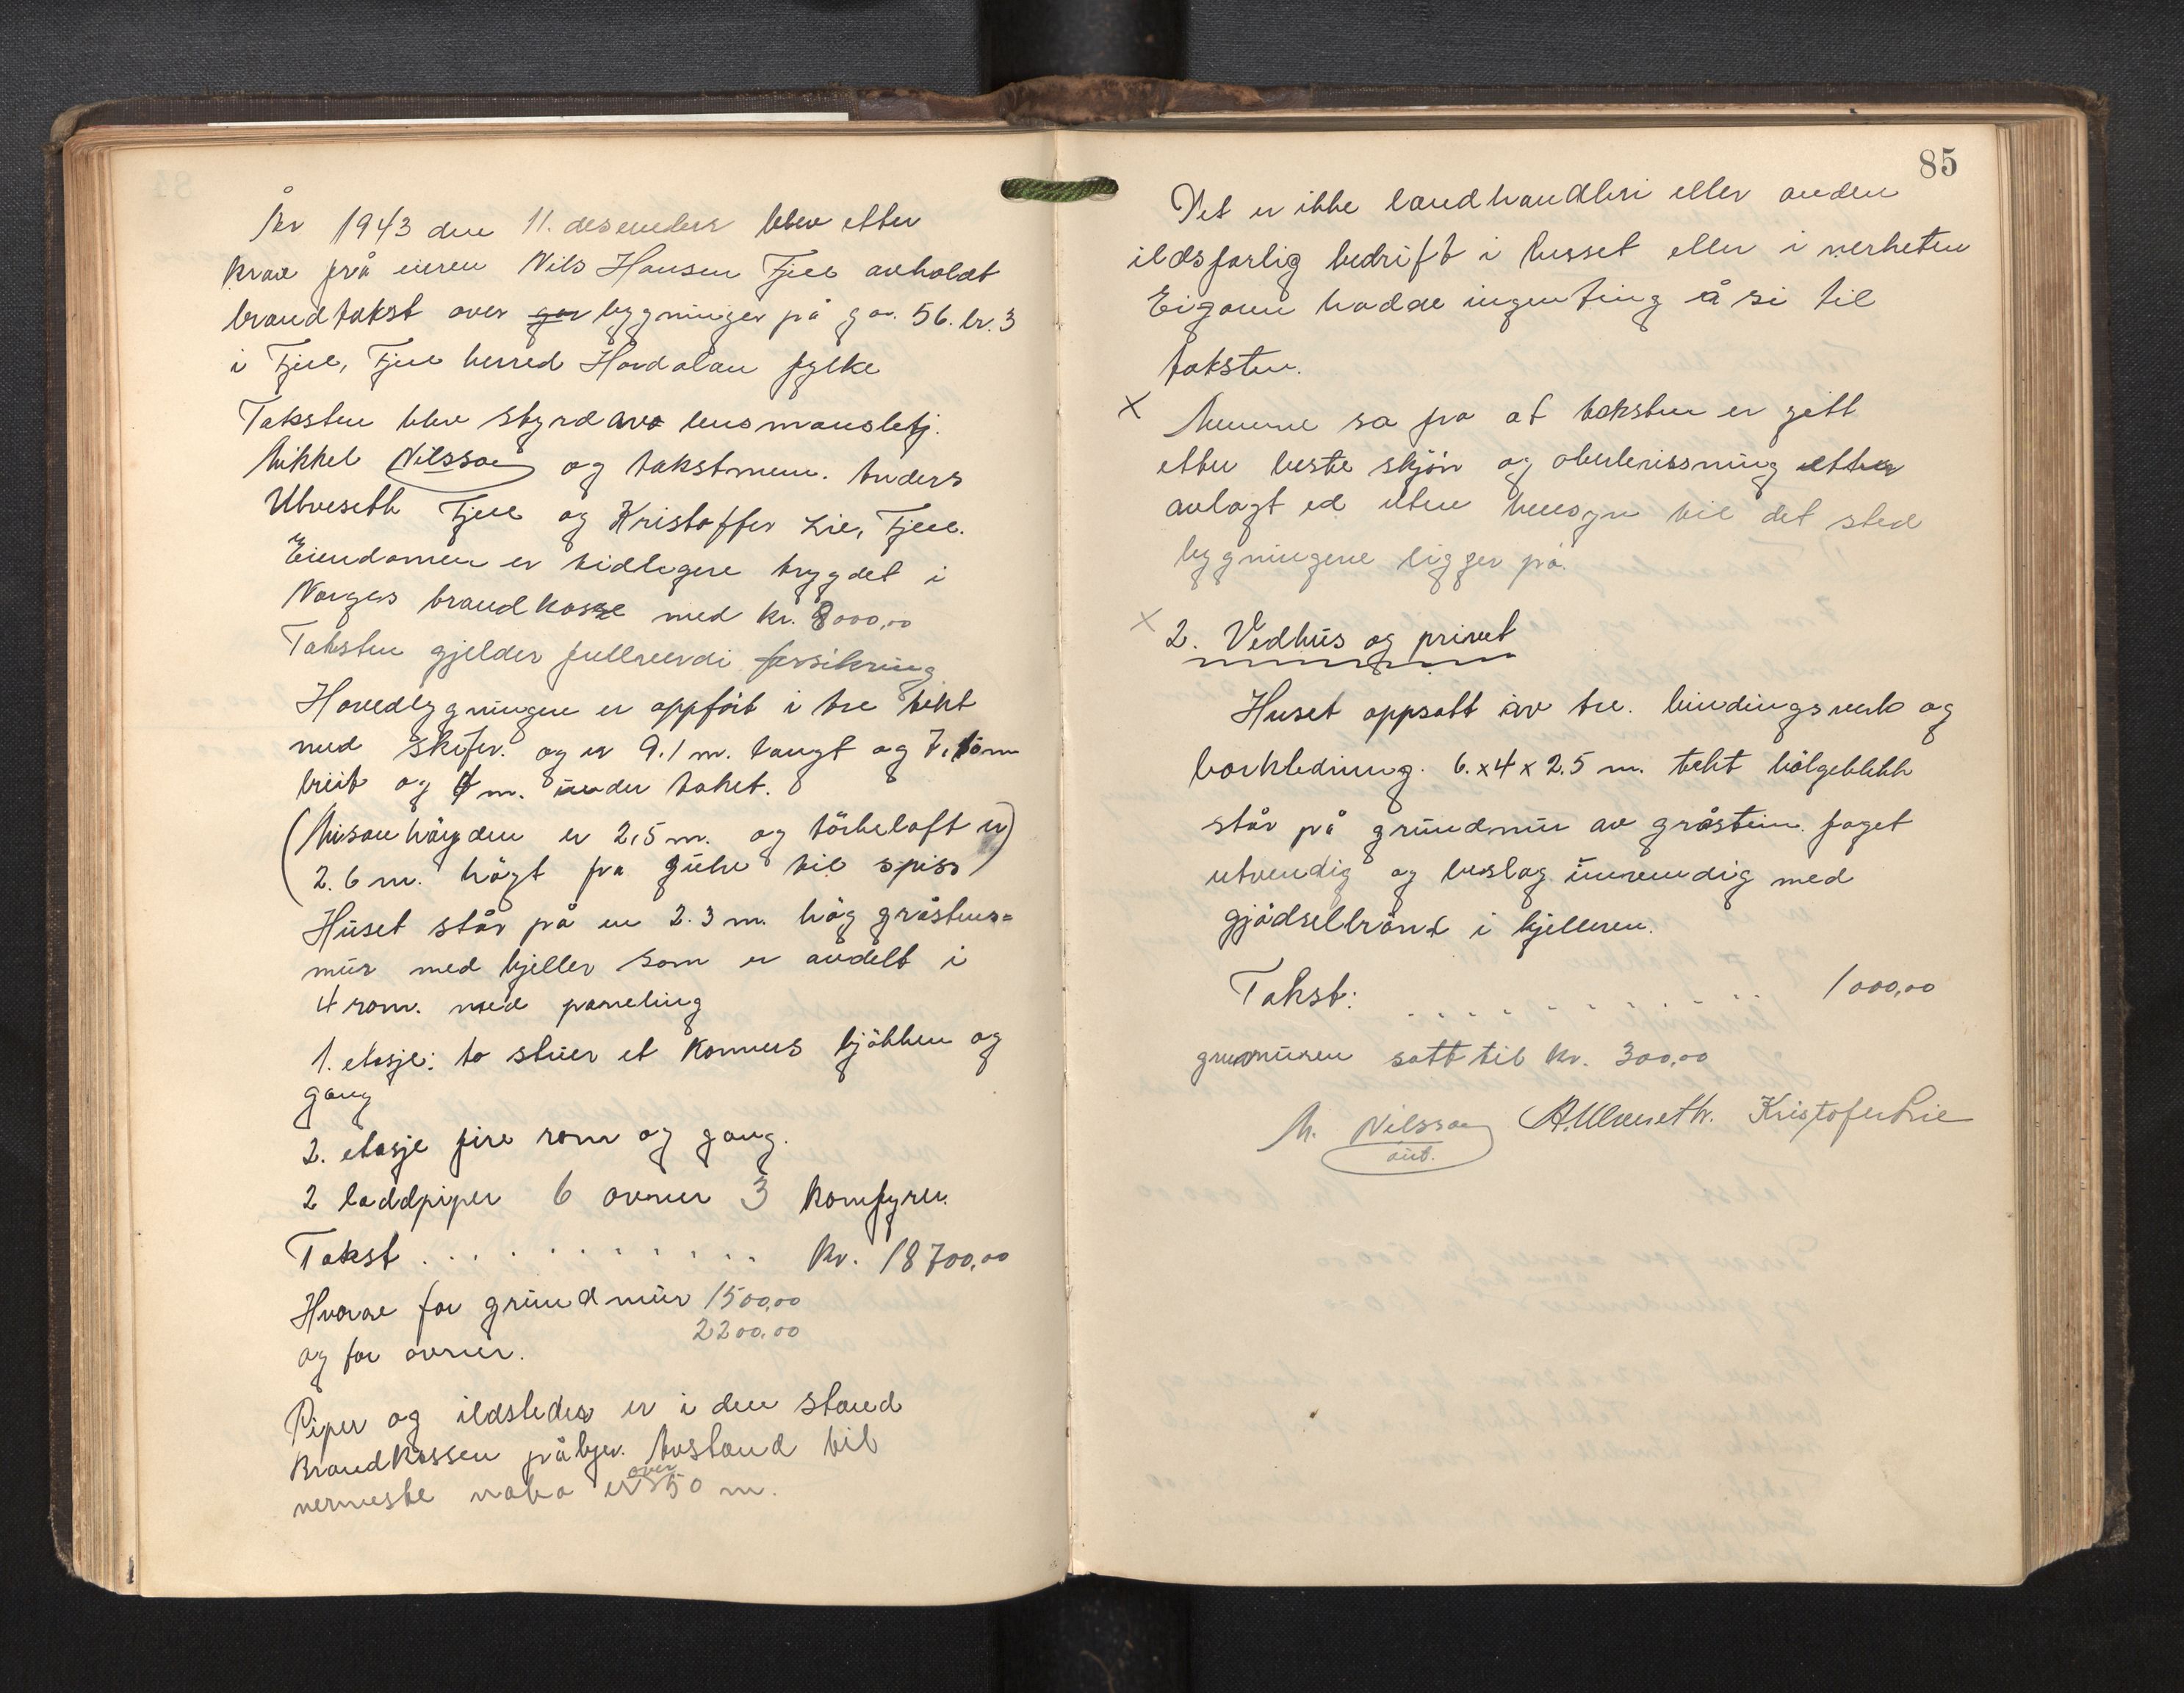 År 1943 den 11. desember blev etter
krav frå eieren Nils Hansen Fjell avholdt
brandtakst over gar bygninger på g nr. 56. br. 3
i Fjell, Fjell herred Hordalan fylke
Taksten blev styrd ava lensmansbetj.
Mikkel Nilssen og takstmenn. Anders
Ulveseth Fjell og Kristoffer Lie, Fjell.
Eiendomen er tidligere trygdet i
Norges brandkasse med kr. 8000,00
Taksten gjelder fullverdi forsikring
Hovedbygningen er oppført i tre tekt
med skifer. og er 9.1 m. langt og 7,10m
breit og 4 m. under taket.
(Misonhøgden er 2,5 m. og tørkeloft er)
2.6 m. høgt fra gulv til spiss)
Huset står på en 2.3 m. høg gråstens=
mur med kjeller som er avdelt i
4 rom. med paneling
1. etasje: to stuer et kammers kjøkken og
gang
2. etasje fire rom og gang.
2 laddpiper 6 ovner 3 komfyrer.
Takst . . . . . . . . . . . . kr. 18700,00
Hvorav for grundmur 1500,00
2200,00
og for ovner.
Piper og ildsteder er i den stand
Brandkassen påbyr. Avstand til
nermeste nabo er over 50 m.
85
Det er ikke landhandleri eller anden
ildsfarlig bedrift i husset eller i nerheten
Eigaren hadde ingenting å si til
taksten.
x Mennene sa fra at taksten er gitt
etter beste skjøn og overbevissning etter
avlagt ed uten hensyn til det sted
bygningene ligger på.
x 2. Vedhus og privet
Huset oppsatt av tre. bindingsverk og
bordkledning. 6. x 4 x 2.5 m. tekt bølgeblekk
står på grundmur av gråstein. faget
utvendig og beslag innvendig med
gjødselbrønd i kjelleren.
Takst: . . . . . . . . . . . 1000,00
grunmuren satt til kr. 300,00
M. Nilssen A. Ulveseth. Kristofer Lie
aut.